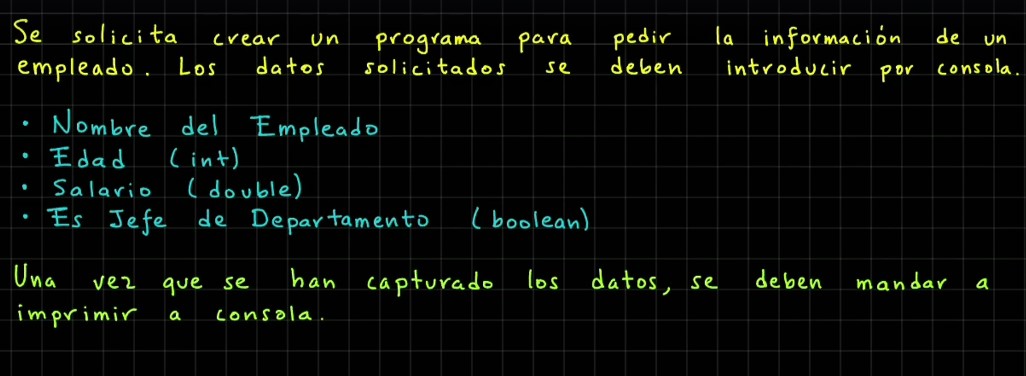 Se solicita crear un programa para pedir la información de un
empleado. Los datos solicitados se deben introducir por consola.
• Nombre del Empleado
• Edad (int)
• Salario (double)
• Es Jefe de Departamento (boolean)
Una vez que se han capturado los datos, se deben mandar a
imprimir a consola.